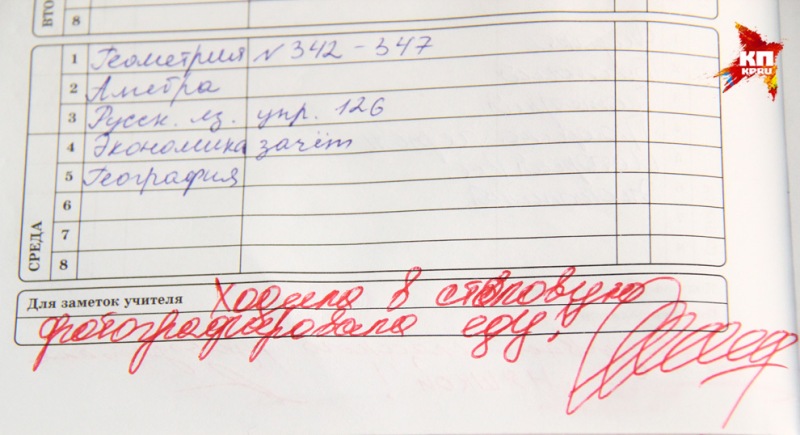 ВТО
8
КП
KP.RU
СРЕДА
1 Геометрия №342-347
2 Алгебра
3 Русск. яз. упр. 126
4 Экономика зачёт
5 География
6
7
8
Для заметок учителя Ходила в столовую
фотографировала еду!